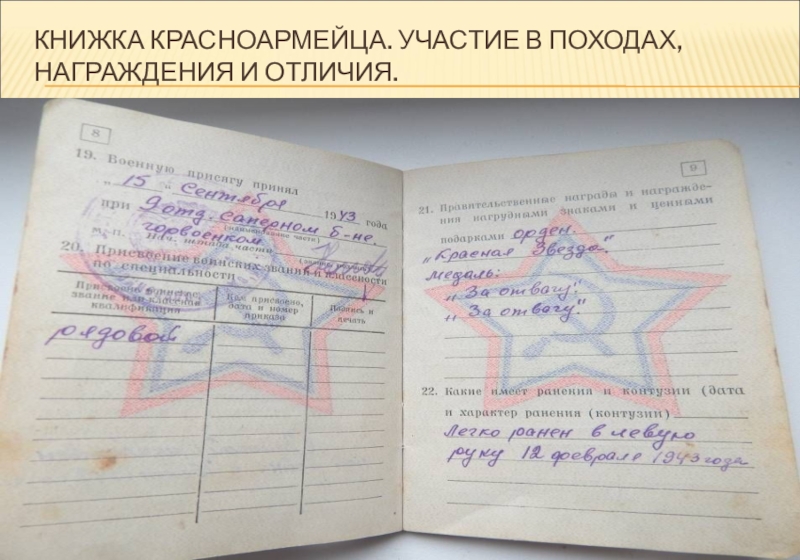 КНИЖКА КРАСНОАРМЕЙЦА. УЧАСТИЕ В ПОХОДАХ,
НАГРАЖДЕНИЯ И ОТЛИЧИЯ.
8
19. Военную присягу принял
„ 15 „ Сентября 1943 года
при 9 отд. саперном б-не.
(наименование части)
м. п. горвоенком
Нач. штаба части
20. Присвоение воинских званий и классности
по специальности
Присвоено воинское
звание или классная
квалификация
Кем присвоено,
дата и номер
приказа
Подпись и
печать
рядовой
9
21. Правительственные награды и награжде-
ния нагрудными знаками и ценными
подарками орден.
„Красная Звезда."
медаль:
„За отвагу".
„За отвагу".
22. Какие имеет ранения и контузии (дата
и характер ранения (контузии)
Легко ранен в левую
руку 12 феврале 1943 года